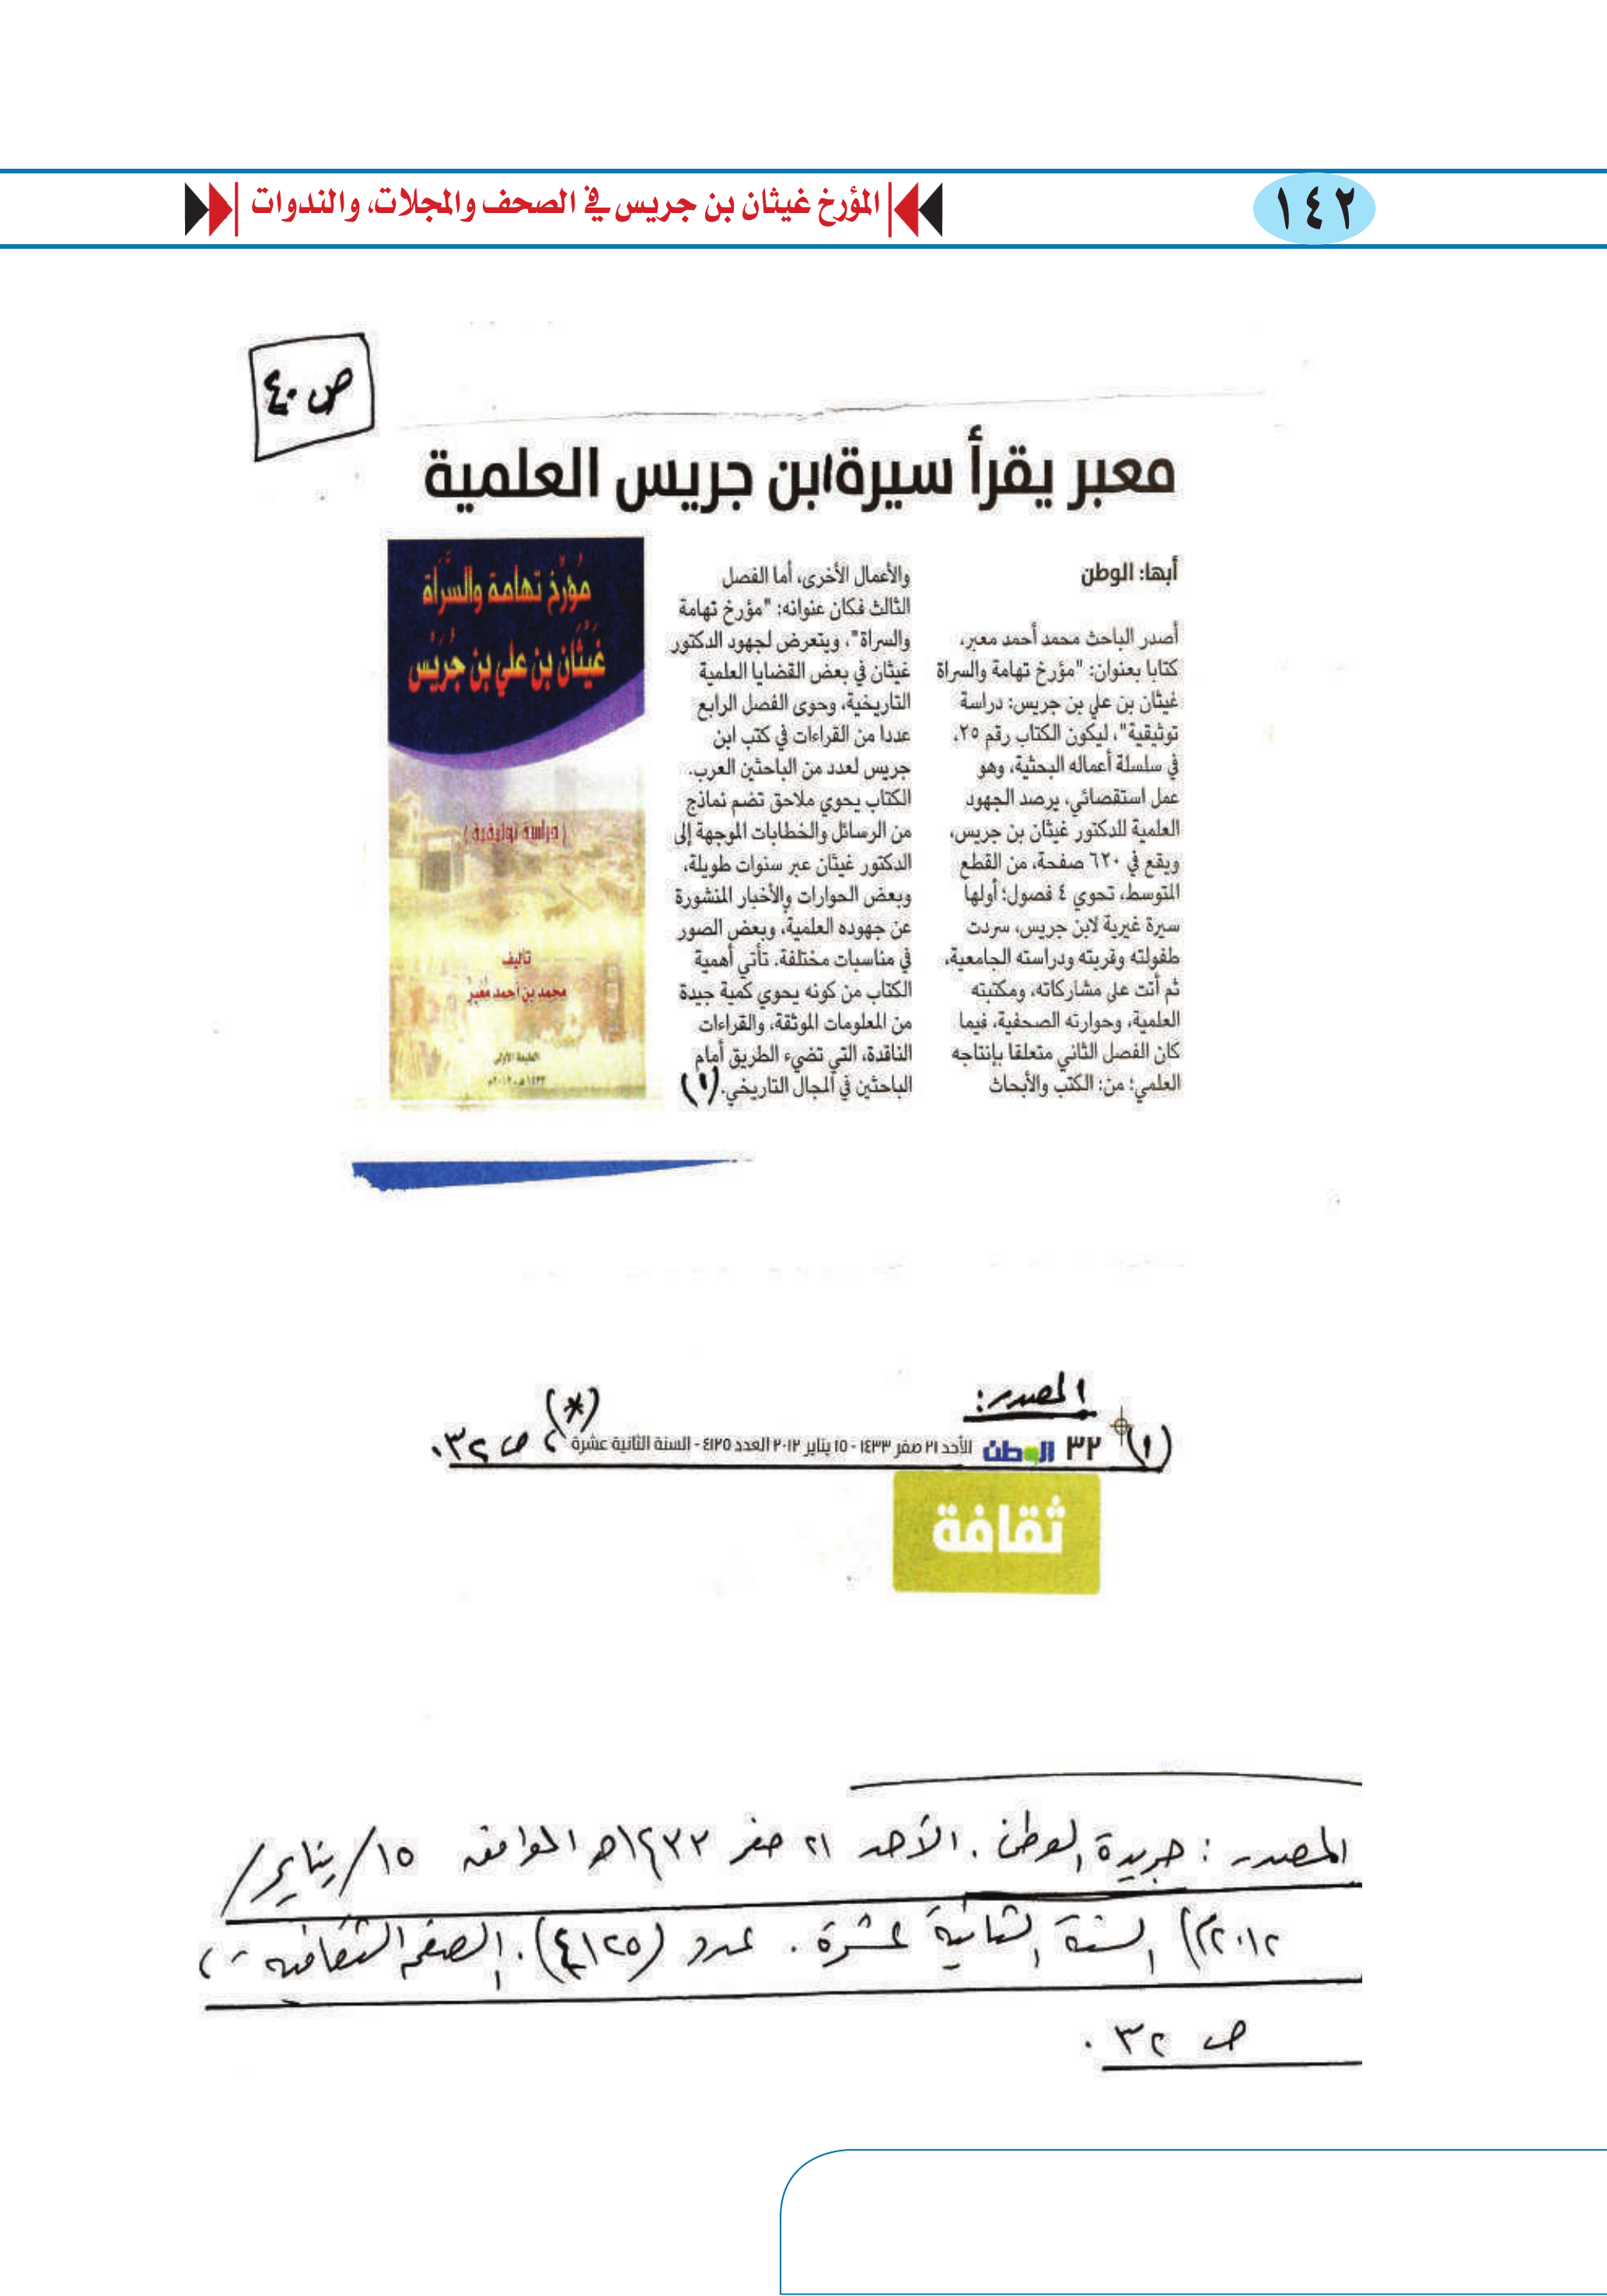 ١٤٢
المؤرخ غيثان بن جريس في الصحف والمجلات، والندوات
ص ٤٠
معبر يقرأ سيرة ابن جريس العلمية
أبها: الوطن
أصدر الباحث محمد أحمد معبر،
كتابا بعنوان: "مؤرخ تهامة والسراة
غيثان بن علي بن جريس: دراسة
توثيقية"، ليكون الكتاب رقم ٢٥،
في سلسلة أعماله البحثية، وهو
عمل استقصائي، يرصد الجهود
العلمية للدكتور غيثان بن جريس،
ويقع في ٦٢٠ صفحة، من القطع
المتوسط، تحوي ٤ فصول؛ أولها
سيرة غيرية لابن جريس، سردت
طفولته وقريته ودراسته الجامعية،
ثم أتت على مشاركاته، ومكتبته
العلمية، وحوارته الصحفية، فيما
كان الفصل الثاني متعلقا بإنتاجه
العلمي؛ من: الكتب والأبحاث
والأعمال الأخرى، أما الفصل
الثالث فكان عنوانه: "مؤرخ تهامة
والسراة"، ويتعرض لجهود الدكتور
غيثان في بعض القضايا العلمية
التاريخية، وحوى الفصل الرابع
عددا من القراءات في كتب ابن
جريس لعدد من الباحثين العرب.
الكتاب يحوي ملاحق تضم نماذج
من الرسائل والخطابات الموجهة إلى
الدكتور غيثان عبر سنوات طويلة،
وبعض الحوارات والأخبار المنشورة
عن جهوده العلمية، وبعض الصور
في مناسبات مختلفة. تأتي أهمية
الكتاب من كونه يحوي كمية جيدة
من المعلومات الموثقة، والقراءات
الناقدة، التي تضيء الطريق أمام
الباحثين في المجال التاريخي. (١)
مؤرخ تهامة والسراة
غيثان بن علي بن جريس
(دراسة توثيقية)
تأليف
محمد بن أحمد معبر
الطبعة الأولى
١٤٣٣هـ-٢٠١٢م
المصدر:
(١) ٣٢ الوطن الأحد ٢١ صفر ١٤٣٣ - ١٥ يناير ٢٠١٢ العدد ٤١٢٥ - السنة الثانية عشرة (*) ، ص ٣٢.
ثقافة
المصدر: جريدة الوطن. الأحد ٢١ صفر ١٤٣٣هـ الموافق ١٥/يناير/
٢٠١٢م) السنة الثانية عشرة. عدد (٤١٢٥). الصفحة الثقافية،
ص ٣٢.